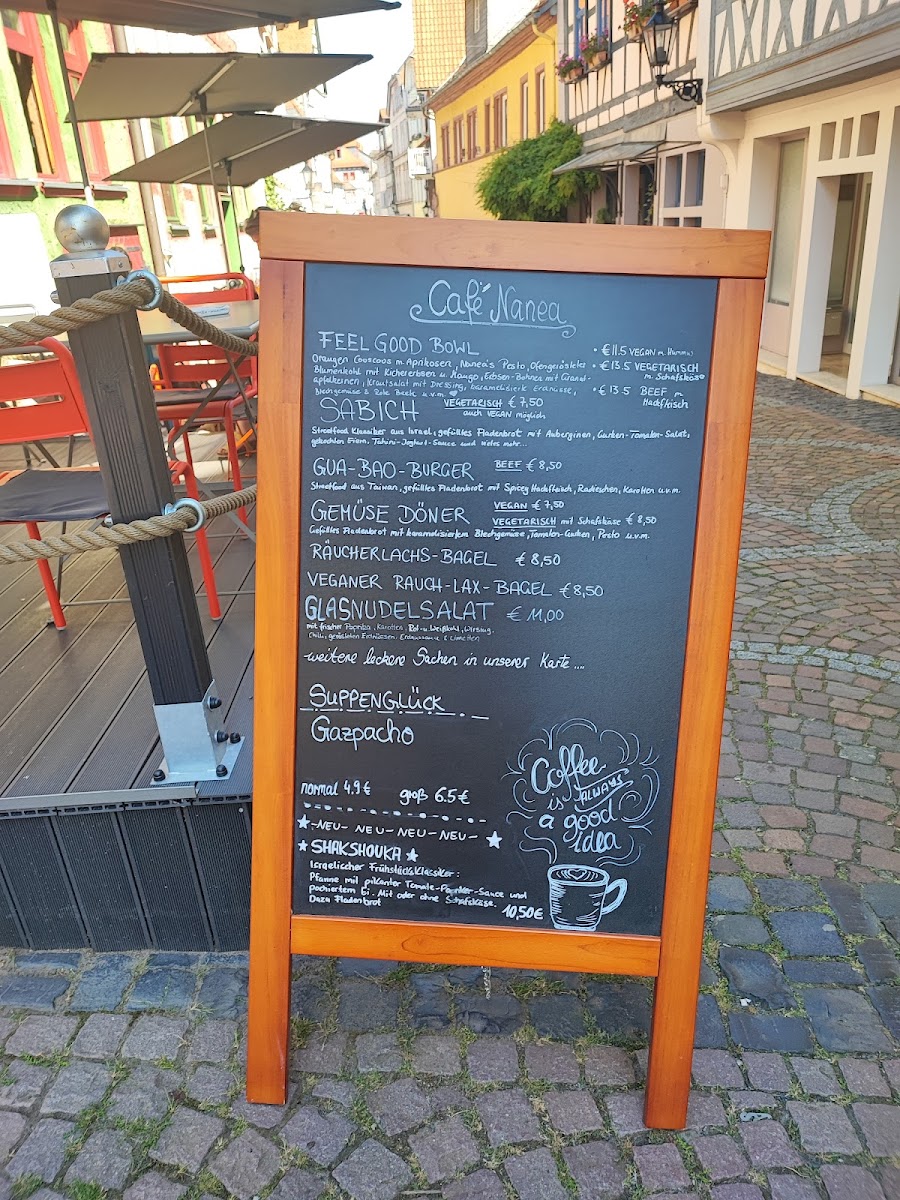 Café Nanea
FEEL GOOD BOWL
Orangen Couscous m. Aprikosen, Nanea's Pesto, Ofengerösteter
Blumenkohl mit Kichererbsen u. Mango, Erbsen-Bohnen mit Granat-
apfelkernen, Krautsalat mit Dressing, karamelisierte Erdnüsse,
Blechgemüse & Rote Beete u.v.m.
• €11.5 VEGAN m. Hummus
• €13.5 VEGETARISCH
m. Schafskäse
• €13.5 BEEF m.
Hackfleisch
SABICH VEGETARISCH € 7,50
auch VEGAN möglich
Streetfood Klassiker aus Israel, gefülltes Fladenbrot mit Auberginen, Gurken-Tomaten-Salat,
gekochten Eiern, Tahini-Joghurt-Sauce und vieles mehr..
GUA-BAO-BURGER BEEF € 8,50
Streetfood aus Taiwan, gefülltes Fladenbrot mit Spicey Hackfleisch, Radieschen, Karotten u.v.m.
GEMÜSE DÖNER VEGAN € 7,50
VEGETARISCH mit Schafskäse € 8,50
Gefülltes Fladenbrot mit karamelisiertem Blechgemüse, Tomaten-Gurken, Pesto u.v.m.
RÄUCHERLACHS-BAGEL € 8,50
VEGANER RAUCH-LAX-BAGEL € 8,50
GLASNUDELSALAT € 11,00
mit frischer Paprika, Karotten, Rot- u. Weißkohl, Wirsing,
Chili, gerösteten Erdnüssen, Erdnusssauce & Limetten
-weitere leckere Sachen in unserer Karte ....
SUPPENGLÜCK
Gazpacho
normal 4.9 € goß 6.5 €
-NEU- NEU-NEU-NEU-
SHAKSHOUKA
Israelischer Frühstücksklassiker:
Pfanne mit pikanter Tomate-Paprika-Sauce und
pochiertem Ei. Mit oder ohne Schafskäse.
Dazu Fladenbrot 10,50€
Coffee
is ALWAYS
a good
idea